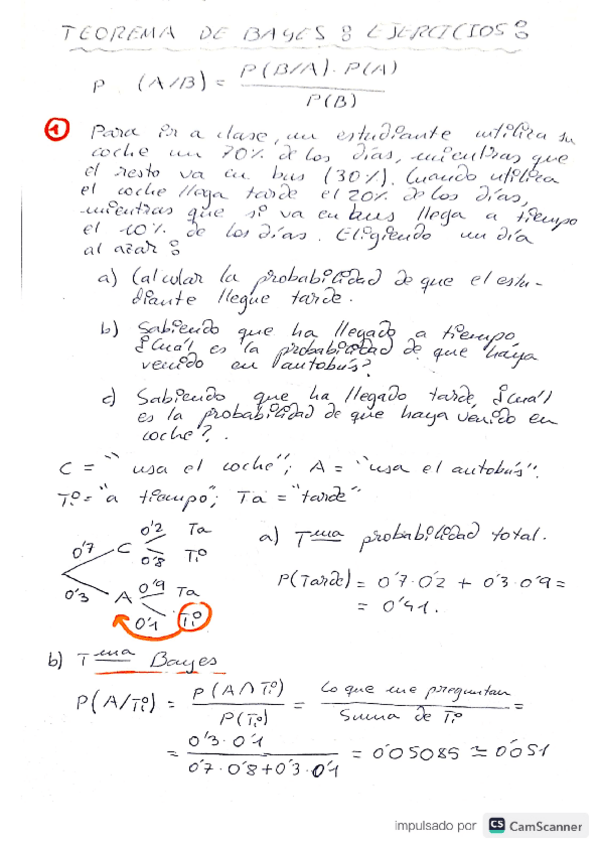 TEOREMA DE BAYES : EJERCICIOS :
P (A/B) = P(B/A) · P(A) / P(B)
1 Para ir a clase, un estudiante utiliza su
coche un 70% de los días, mientras que
el resto va en bus (30%). Cuando utiliza
el coche llega tarde el 20% de los días,
mientras que si va en bus llega a tiempo
el 10% de los días. Eligiendo un día
al azar :
a) Calcular la probabilidad de que el estu-
diante llegue tarde.
b) Sabiendo que ha llegado a tiempo,
¿Cuál es la probabilidad de que haya
venido en autobús?
c) Sabiendo que ha llegado tarde, ¿Cuál
es la probabilidad de que haya venido en
coche?.
C = "usa el coche"; A = "usa el autobús".
Tiº = "a tiempo"; Ta = "tarde"
0'7 C 0'2 Ta
0'8 Tiº
0'3 A 0'9 Ta
0'1 Tiº
a) Tema probabilidad total.
P(Tarde) = 0'7·0'2 + 0'3·0'9 =
= 0'41.
b) Tema Bayes
P(A/Tiº) = P(A∩Tiº) / P(Tiº) = Lo que me preguntan / Suma de Tiº =
= 0'3·0'1 / 0'7·0'8+0'3·0'1 = 0'05085 ≈ 0'051
impulsado por CS CamScanner